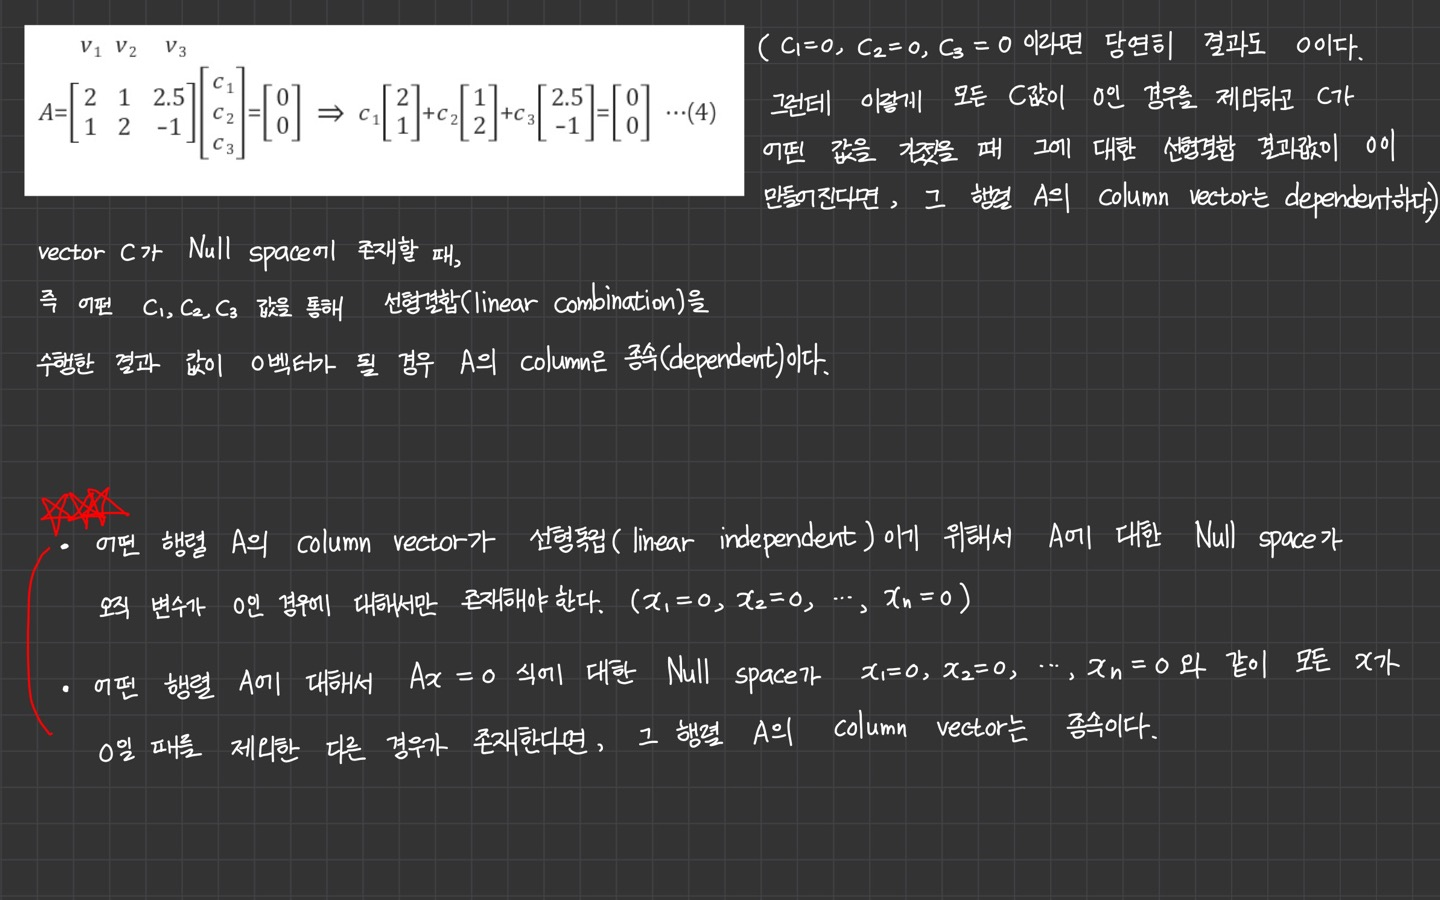 v₁ v₂ v₃
A=[2 1 2.5; 1 2 -1][c₁; c₂; c₃]=[0; 0] ⇒ c₁[2; 1]+c₂[1; 2]+c₃[2.5; -1]=[0; 0] ⋯(4)
( C₁=0, C₂=0, C₃ = 0 이라면 당연히 결과도 0이다.
그런데 이렇게 모든 C값이 0인 경우를 제외하고 C가
어떤 값을 가졌을 때 그에 대한 선형결합 결과값이 0이
만들어진다면, 그 행렬 A의 column vector는 dependent하다)
vector C가 Null space에 존재할 때,
즉 어떤 C₁, C₂, C₃ 값을 통해 선형결합(linear combination)을
수행한 결과 값이 0벡터가 될 경우 A의 column은 종속(dependent)이다.
• 어떤 행렬 A의 column vector가 선형독립( linear independent ) 이기 위해서 A에 대한 Null space가
오직 변수가 0인 경우에 대해서만 존재해야 한다. (x₁=0, x₂=0, ⋯, xₙ=0)
• 어떤 행렬 A에 대해서 Ax = 0 식에 대한 Null space가 x₁=0, x₂=0, ⋯, xₙ=0 와 같이 모든 x가
0일 때를 제외한 다른 경우가 존재한다면, 그 행렬 A의 column vector는 종속이다.